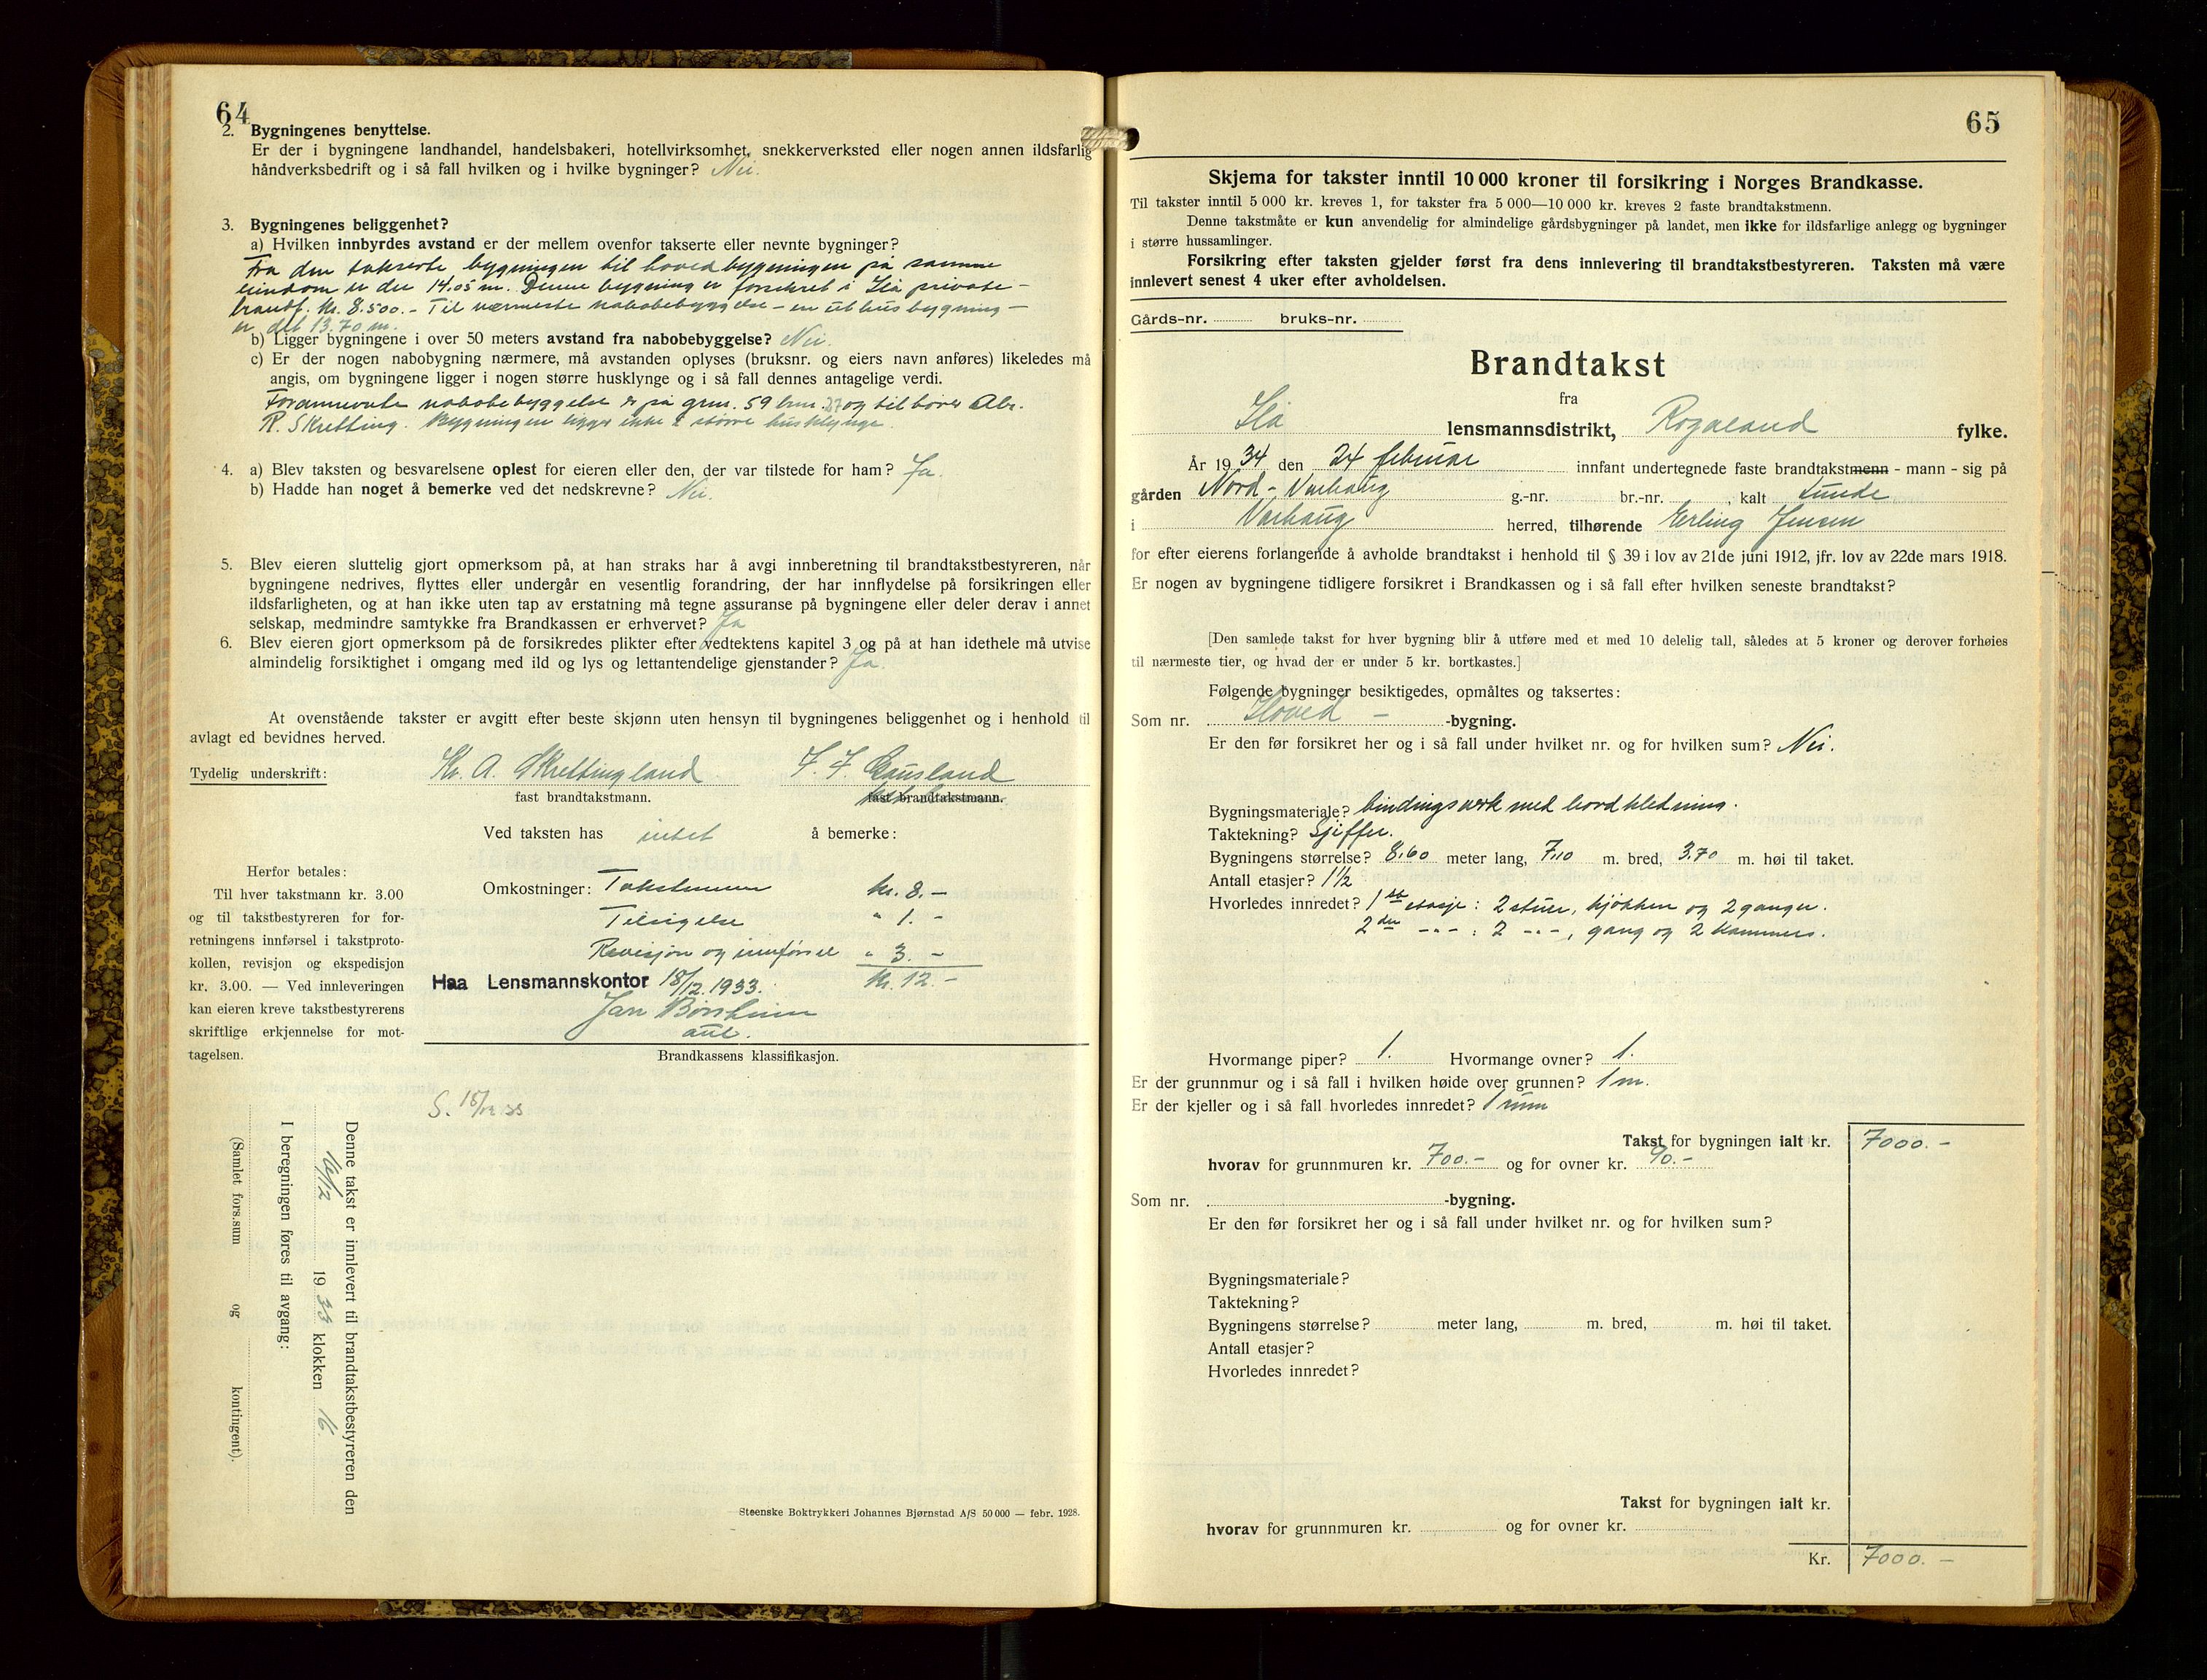 64
2. Bygningenes benyttelse.
Er der i bygningene landhandel, handelsbakeri, hotellvirksomhet, snekkerverksted eller nogen annen ildsfarlig
håndverksbedrift og i så fall hvilken og i hvilke bygninger? Nei.
3. Bygningenes beliggenhet?
a) Hvilken innbyrdes avstand er der mellem ovenfor takserte eller nevnte bygninger?
Fra den takserte bygningen til hovedbygningen på samme
eiendom er der 14,05 m. Denne bygning er forsikret i Hå private-
brandf. kr. 8.500.- Til nærmeste nabobebyggelse - en uthusbygning -
er det 13.70 m.
b) Ligger bygningene i over 50 meters avstand fra nabobebyggelse? Nei.
c) Er der nogen nabobygning nærmere, må avstanden oplyses (bruksnr. og eiers navn anføres) likeledes må
angis, om bygningene ligger i nogen større husklynge og i så fall dennes antagelige verdi.
Forannevnte nabobebyggelse er på grnr. 59 brnr. 27 og tilhører Abr.
R. Skretting. Bygningen ligger ikke i større husklynge.
4. a) Blev taksten og besvarelsene oplest for eieren eller den, der var tilstede for ham? Ja.
b) Hadde han noget å bemerke ved det nedskrevne? Nei.
5. Blev eieren sluttelig gjort opmerksom på, at han straks har å avgi innberetning til brandtakstbestyreren, når
bygningene nedrives, flyttes eller undergår en vesentlig forandring, der har innflydelse på forsikringen eller
ildsfarligheten, og at han ikke uten tap av erstatning må tegne assuranse på bygningene eller deler derav i annet
selskap, medmindre samtykke fra Brandkassen er erhvervet? Ja
6. Blev eieren gjort opmerksom på de forsikredes plikter efter vedtektens kapitel 3 og på at han idethele må utvise
almindelig forsiktighet i omgang med ild og lys og lettantendelige gjenstander? Ja.
At ovenstående takster er avgitt efter beste skjønn uten hensyn til bygningenes beliggenhet og i henhold til
avlagt ed bevidnes herved.
Tydelig underskrift: Kr. A. Skrettingland F. F. Gausland
fast brandtakstmann. fast brandtakstmann.
Ved taksten has intet å bemerke:
Herfor betales:
Til hver takstmann kr. 3.00
og til takstbestyreren for for-
retningens innførsel i takstproto-
kollen, revisjon og ekspedisjon
kr. 3.00. — Ved innleveringen
kan eieren kreve takstbestyrerens
skriftlige erkjennelse for mot-
tagelsen.
Omkostninger: Takstmenn kr. 8.-
Tilsigelse " 1.-
Revisjon og innførsel " 3.-
Haa Lensmannskontor 18/12.1933. kr. 12.-
Jan Børsheim
aut.
Brandkassens klassifikasjon.
S. 18/12 33
Denne takst er innlevert til brandtakstbestyreren den
16/12 1933 klokken 16.
I beregningen føres til avgang:
(Samlet fors.sum og kontingent).
Steenske Boktrykkeri Johannes Bjørnstad A/S 50 000 — febr. 1928.
65
Skjema for takster inntil 10 000 kroner til forsikring i Norges Brandkasse.
Til takster inntil 5 000 kr. kreves 1, for takster fra 5 000—10 000 kr. kreves 2 faste brandtakstmenn.
Denne takstmåte er kun anvendelig for almindelige gårdsbygninger på landet, men ikke for ildsfarlige anlegg og bygninger
i større hussamlinger.
Forsikring efter taksten gjelder først fra dens innlevering til brandtakstbestyreren. Taksten må være
innlevert senest 4 uker efter avholdelsen.
Gårds-nr. bruks-nr.
Brandtakst
fra
Hå lensmannsdistrikt, Rogaland fylke.
År 1934 den 24 februar innfant undertegnede faste brandtakstmenn - mann - sig på
gården Nord-Varhaug g.-nr. br.-nr. , kalt Lunde
i Varhaug herred, tilhørende Erling Jensen
for efter eierens forlangende å avholde brandtakst i henhold til § 39 i lov av 21de juni 1912, jfr. lov av 22de mars 1918.
Er nogen av bygningene tidligere forsikret i Brandkassen og i så fall efter hvilken seneste brandtakst?
[Den samlede takst for hver bygning blir å utføre med et med 10 delelig tall, således at 5 kroner og derover forhøies
til nærmeste tier, og hvad der er under 5 kr. bortkastes.]
Følgende bygninger besiktigedes, opmåltes og taksertes:
Som nr. Hoved - -bygning.
Er den før forsikret her og i så fall under hvilket nr. og for hvilken sum? Nei.
Bygningsmateriale? bindingsverk med bordkledning.
Taktekning? Sjiffer.
Bygningens størrelse? 8,60 meter lang, 7,10 m. bred, 3,70 m. høi til taket.
Antall etasjer? 1½
Hvorledes innredet? 1ste etasje: 2 stuer, kjøkken og 2 ganger.
2den -"- : 2 -"-, gang og 2 kammers.
Hvormange piper? 1. Hvormange ovner? 1.
Er der grunnmur og i så fall i hvilken høide over grunnen? 1 m.
Er der kjeller og i så fall hvorledes innredet? 1 rum
Takst for bygningen ialt kr. 7000.-
hvorav for grunnmuren kr. 700.- og for ovner kr. 90.-
Som nr. -bygning.
Er den før forsikret her og i så fall under hvilket nr. og for hvilken sum?
Bygningsmateriale?
Taktekning?
Bygningens størrelse? meter lang, m. bred, m. høi til taket.
Antall etasjer?
Hvorledes innredet?
Takst for bygningen ialt kr.
hvorav for grunnmuren kr. og for ovner kr.
Kr. 7000.-